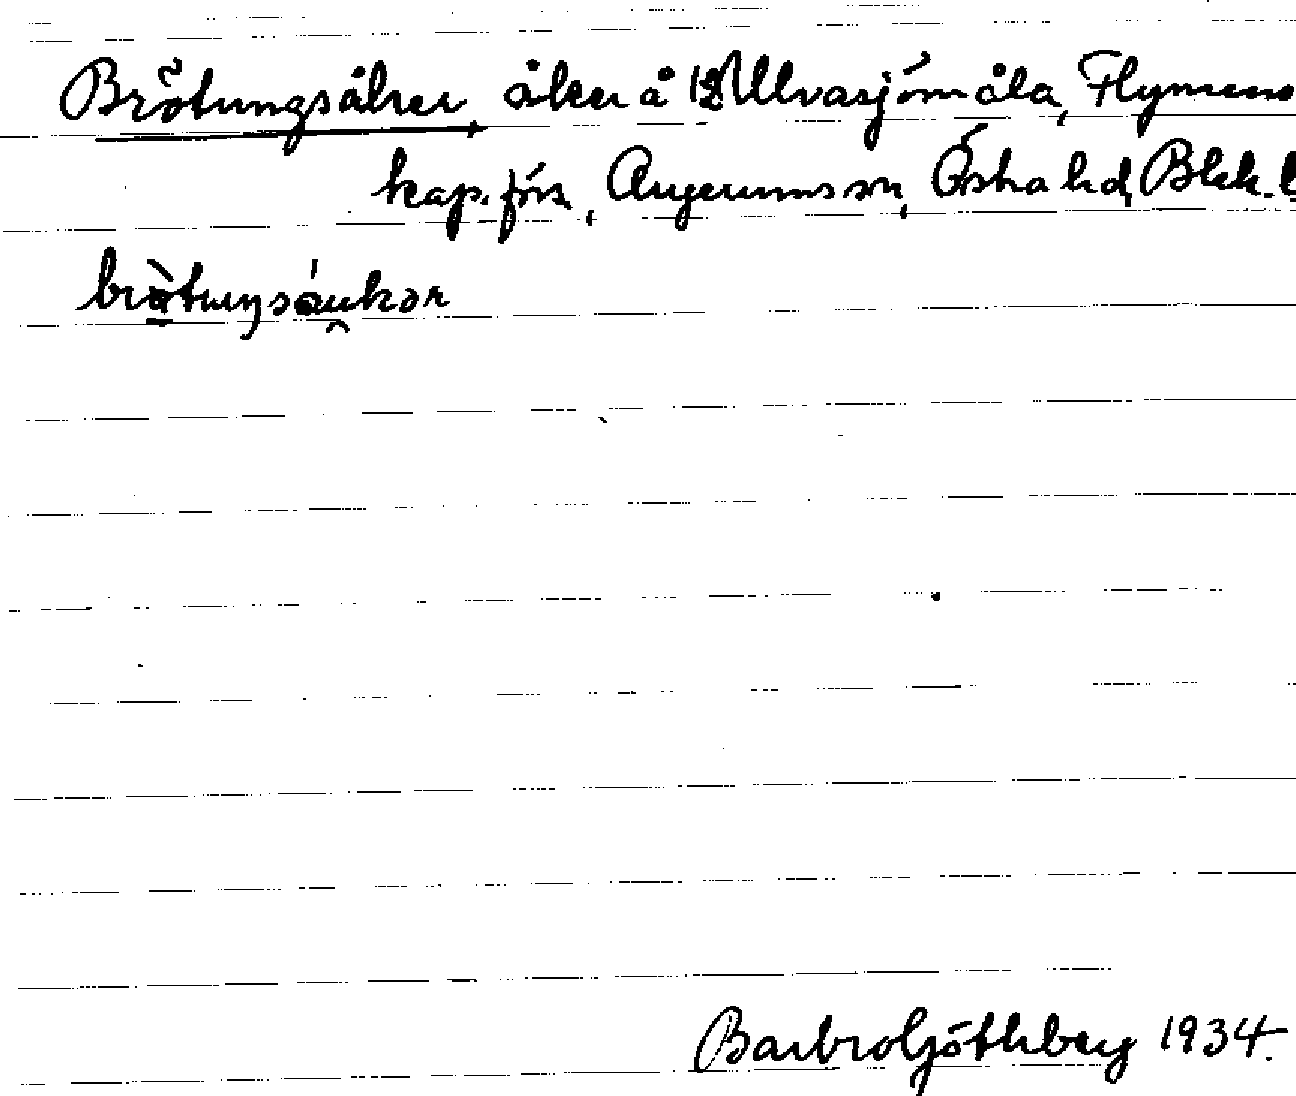 Brötungsåker, åker å 12 Ulvasjömåla, Flymens
kap.förs., Augerums sn, Östra hd, Blek. l
bròtuŋsáukər
Barbro Götbberg 1934.